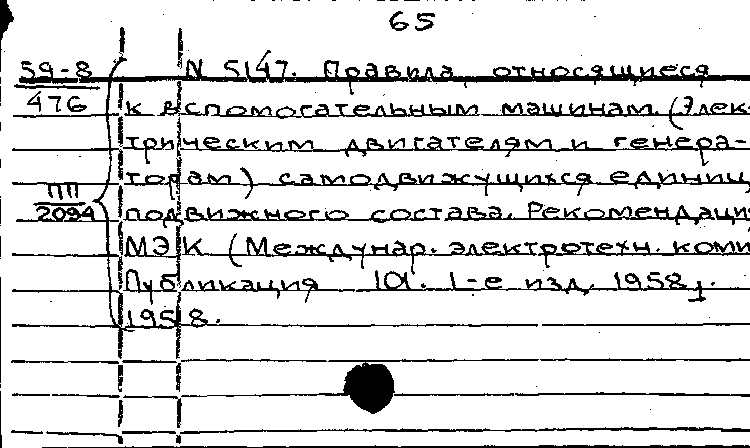 65
59-8 N 5147. Правила, относящиеся
476 к вспомогательным машинам (Элек-
трическим двигателям и генера-
ПП торам) самодвижущихся единиц
2094 подвижного состава. Рекомендаци
МЭК (Междунар. электротехн. коми
Публикация 101. 1-е изд. 1958,
1958.